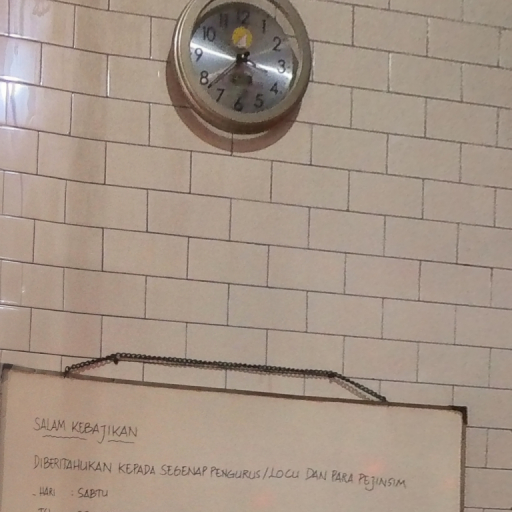 12
1
2
3
4
5
6
7
8
9
10
11
SALAM KEBAJIKAN
DIBERITAHUKAN KEPADA SEGENAP PENGURUS/LOCU DAN PARA PEJINSIM
- HARI : SABTU